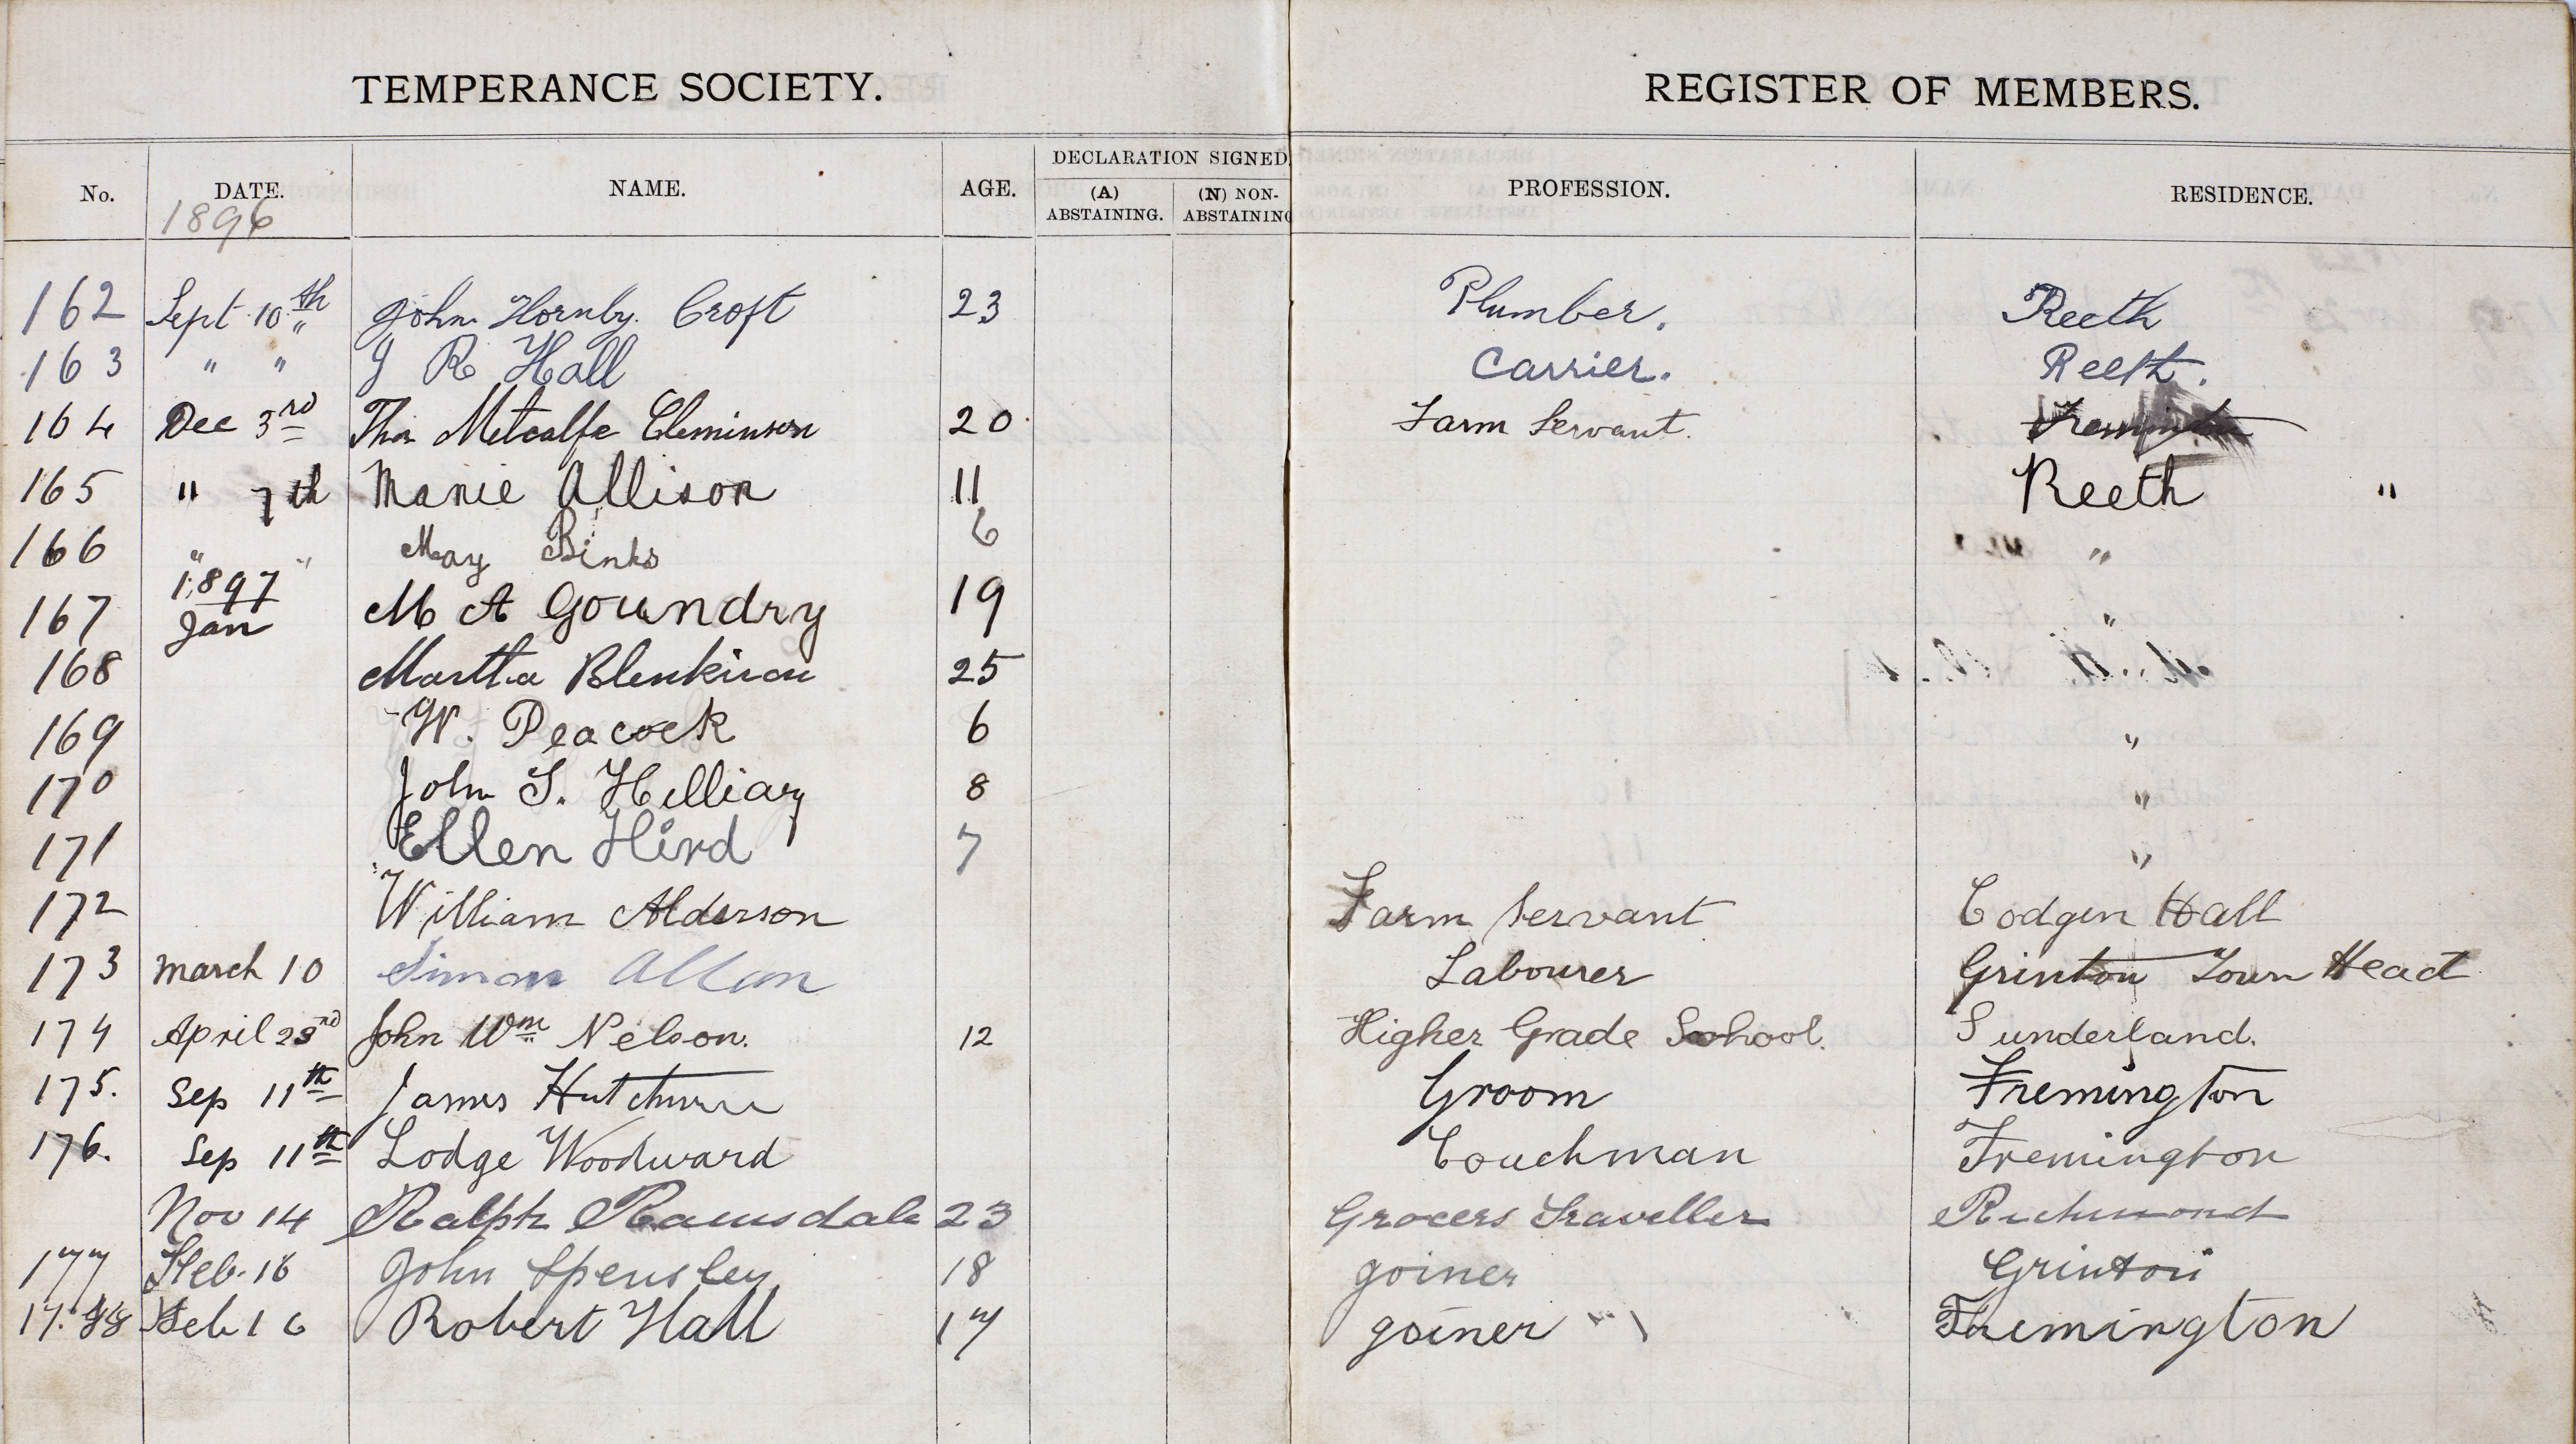 TEMPERANCE SOCIETY. REGISTER OF MEMBERS.
No. DATE. NAME. AGE. DECLARATION SIGNED. PROFESSION. RESIDENCE.
(A) ABSTAINING. (N) NON-ABSTAINING
1896
162 Sept 10th " John Hornby Croft 23 Plumber. Reeth
163 " " J R Hall Carrier. Reeth.
164 Dec 3rd Thos Metcalfe Cleminson 20 Farm Servant.
165 " 7th Manie Allison 11 Reeth "
166 " " May Binks 6 "
1897
167 Jan M A Goundry 19 "
168 Martha Blenkiron 25
169 W. Peacock 6 "
170 John S. Hilliary 8 "
171 Ellen Hird 7 "
172 William Alderson Farm Servant Cogden Hall
173 March 10 Simon Allan Labourer Grinton Town Head
174 April 23rd John Wm Nelson. 12 Higher Grade School. Sunderland.
175. Sep 11th James Groom Fremington
176. Sep 11th Lodge Woodward Couchman Fremington
Nov 14 Ralph Ramsdale 23 Grocers Traveller Richmond
177 Feb. 16 John Spensley 18 Joiner Grinton
178 Feb 16 Robert Hall 17 Joiner Fremington